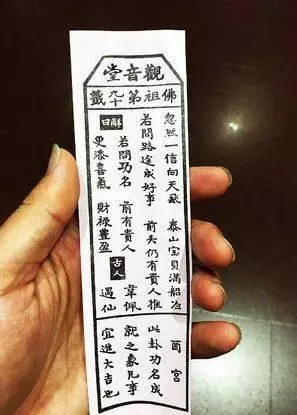 觀音堂
佛祖第九十籤
忽然一信向天飛 泰山宝貝滿船
若問路途成好事 前头仍有貴人推
解曰
若問功名 前有貴人
更添喜氣 財祿豐盈
古人
韋佩
遇仙
酉宮
此卦功名成
就之象凡事
宜進大吉也